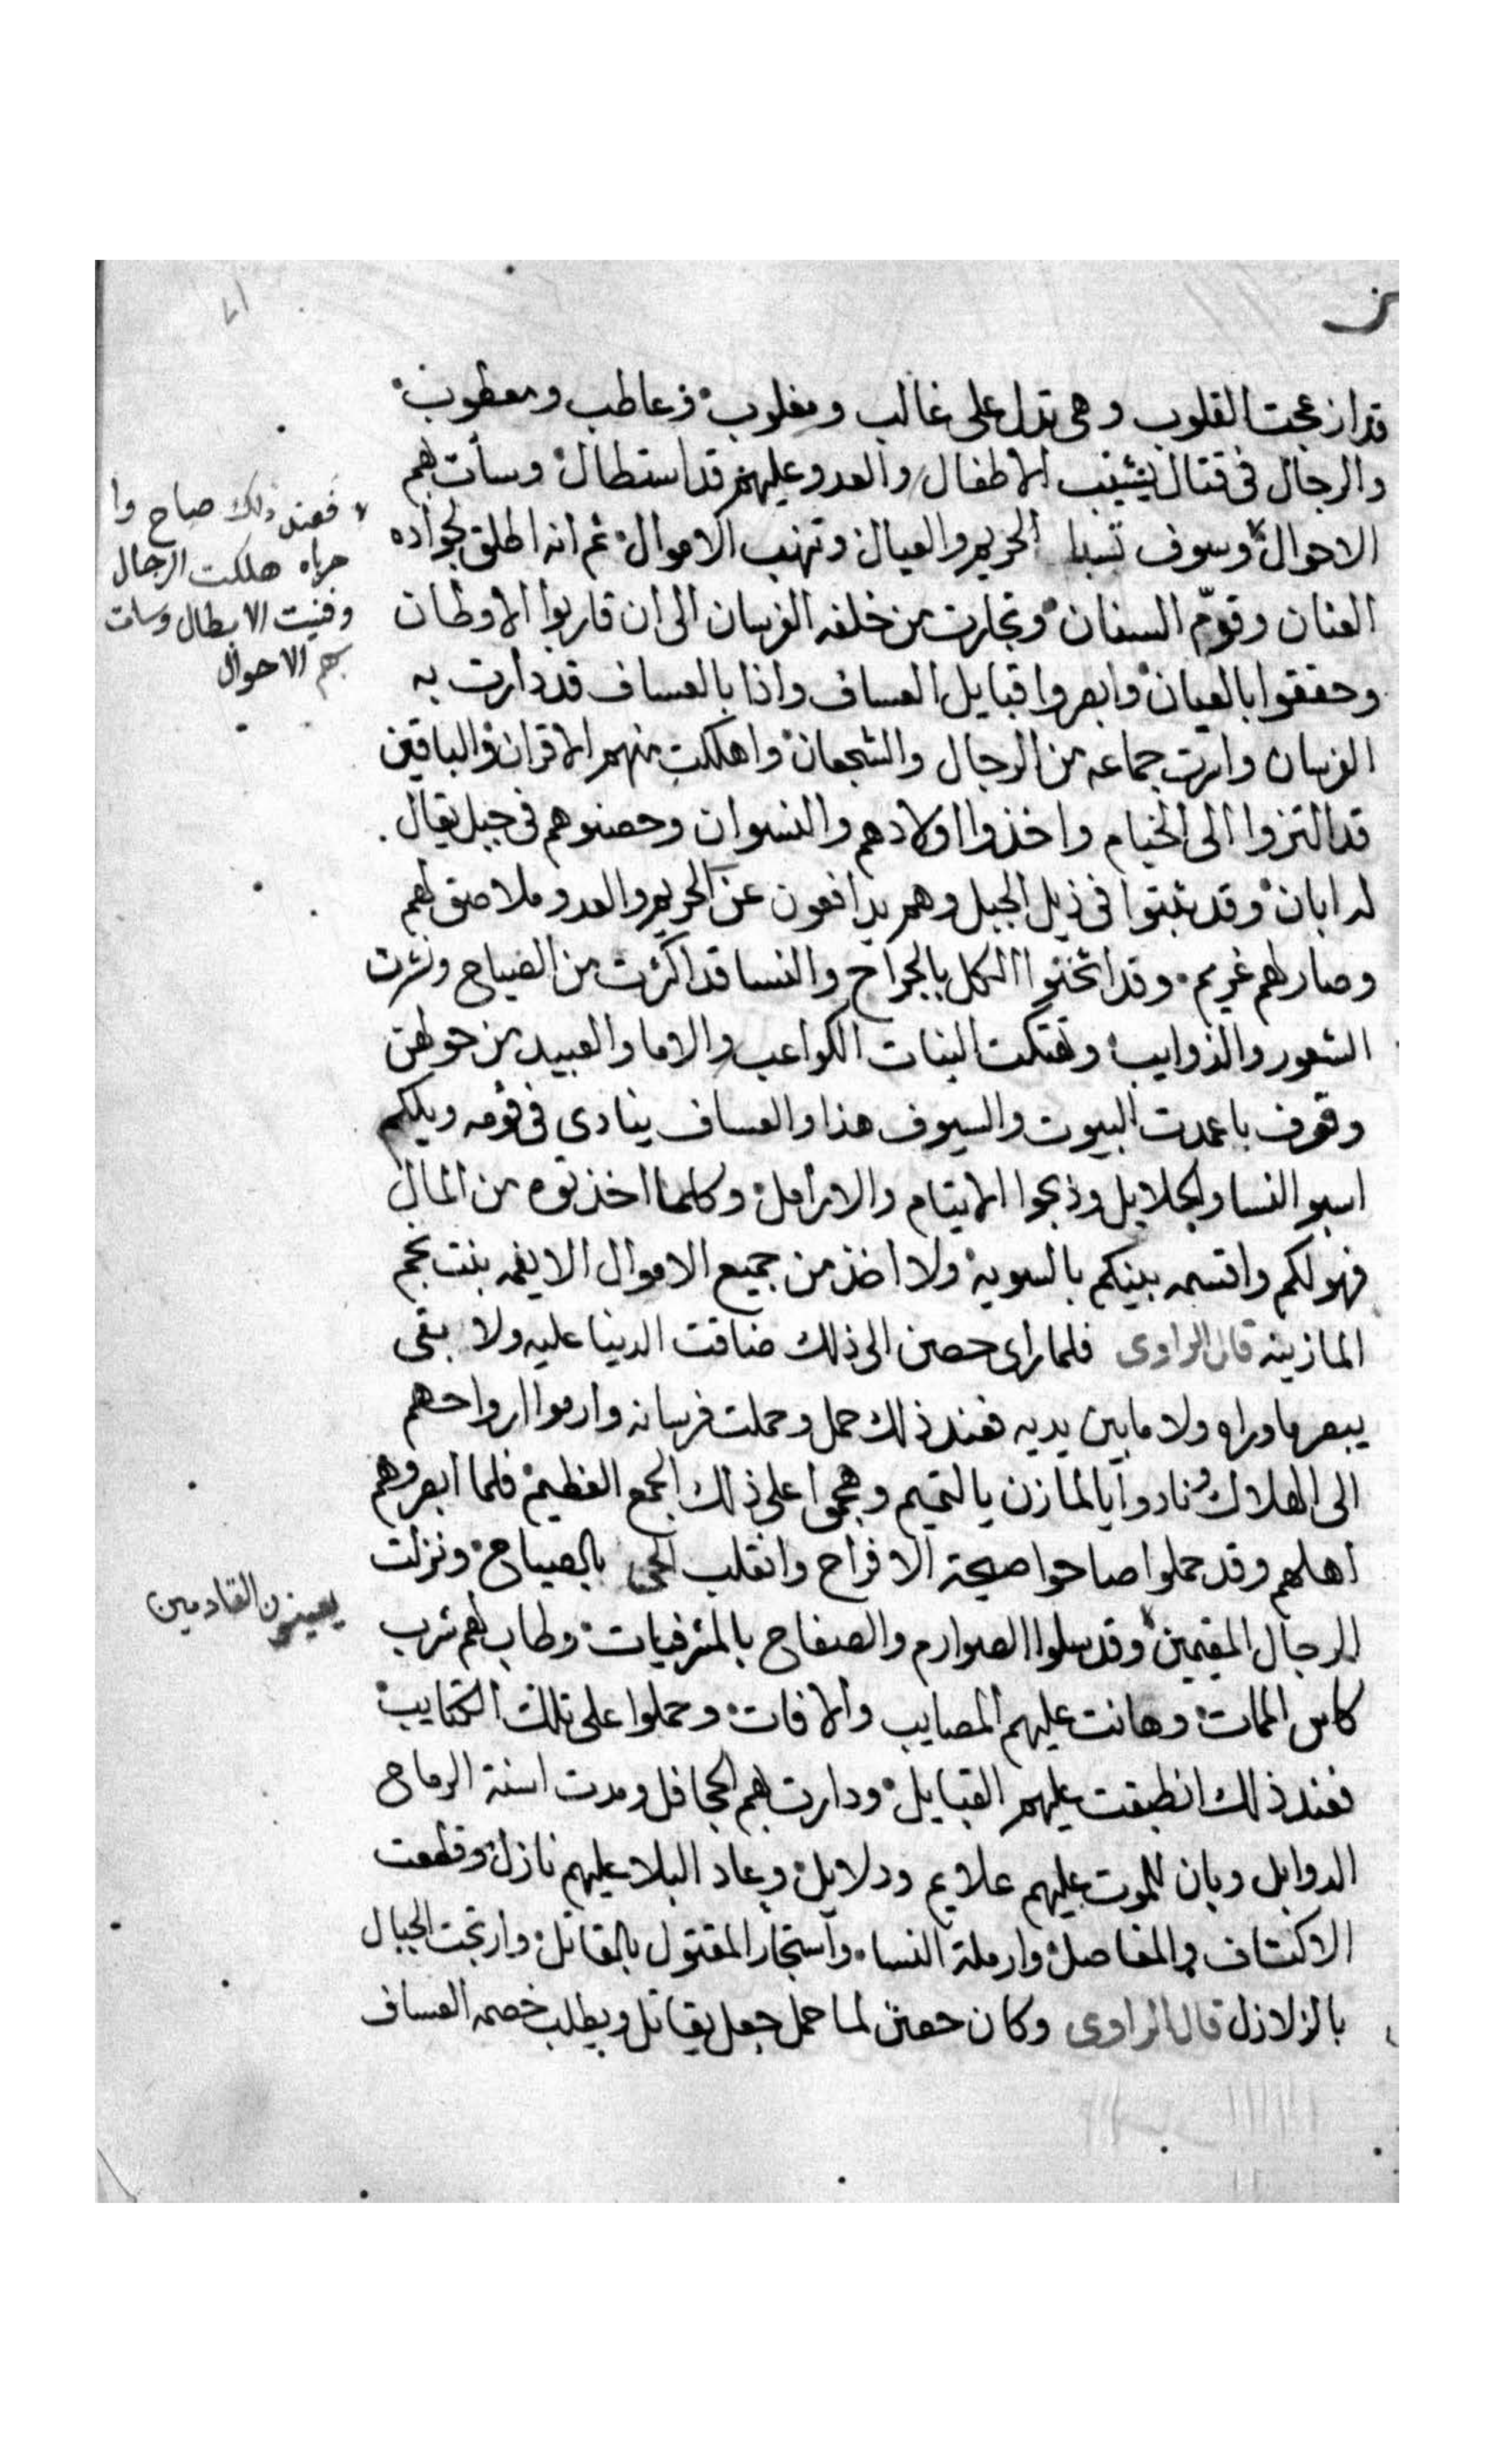 قد ازعجت القلوب وهى تدل على غالب ومغلوب وعاطب ومعطوب
والرجال فى قتال يشيب الاطفال والعدو عليهم قد استطال وسأت بهم
الاحوال وسوف تسبا الحريم والعيال وتنهب الاموال ثم انه اطلق لجواده
العنان وقوّم السنان وتجارت من خلفه الفرسان الى ان قاربوا الاوطان
وحققوا بالعيان وابصروا قبايل العساف واذا بالعساف قد دارت به
الفرسان واسرت جماعه من الرجال والشجعان واهلكت منهم الاقران والباقين
قد التزوا الى الخيام واخذوا اولادهم والنسوان وحصنوهم فى جبل يقال
له ابان وقد ثبتوا فى ذيل الجبل وهم يدافعون عن الحريم والعدو ملاصق لهم
وصار لهم غريم وقد اثخنوا الكل بالجراح والنسا قد اكثرت من الصياح ونشرت
الشعور والذوايب وتهتكت البنات الكواعب والاما والعبيد من حولهن
وقوف باعمدت البيوت والسيوف هذا والعساف ينادى فى قومه ويلكم
اسبو النسا والحلايل وذبحوا الايتام والارامل وكلما اخذتوه من المال
فهو لكم واقتسمه بينكم بالسويه ولا اخذ من جميع الاموال الا نعمه بنت نجم
المازنيه قال الراوى فلما راى حصن الى ذلك ضاقت الدنيا عليه ولا بقى
يبصر ما وراه ولا ما بين يديه فعند ذلك حمل وحملت فرسانه وارموا ارواحهم
الى الهلاك ونادوا يا لمازن يا لتميم وهجموا على ذلك الجمع العظيم فلما ابصروهم
اهلهم وقد حملوا صاحوا صيحة الافراح وانقلب الحى بالصياح ونزلت
الرجال المقيمين وقد سلوا الصوارم والصفاح بالمشرفيات وطاب لهم شرب
كاس الممات وهانت عليهم المصايب والافات وحملوا على تلك الكتايب
فعند ذلك انطبقت عليهم القبايل ودارت بهم الجحافل ومدت اسنة الرماح
الدوابل وبان للموت عليهم علايم ودلايل وعاد البلا عليهم نازل وقطعت
الاكتاف والمفاصل وارملة النسا واستجار المقتول بالقاتل وارتجت الجبال
بالزلازل قال الراوى وكان حصن لما حمل جعل يقاتل ويطلب خصمه العساف
فعند ذلك صاح وا
حرباه هلكت الرجال
وفنيت الابطال وسات
بهم الاحوال
يعينون القادمين